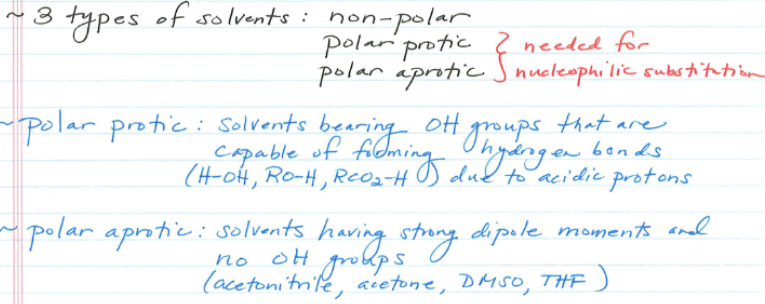 ~ 3 types of solvents : non-polar
polar protic } needed for
polar aprotic } nucleophilic substitution
~ polar protic : solvents bearing OH groups that are
capable of forming hydrogen bonds
(H-OH, RO-H, RCO₂-H) due to acidic protons
~ polar aprotic : solvents having strong dipole moments and
no OH groups
(acetonitrile, acetone, DMSO, THF)